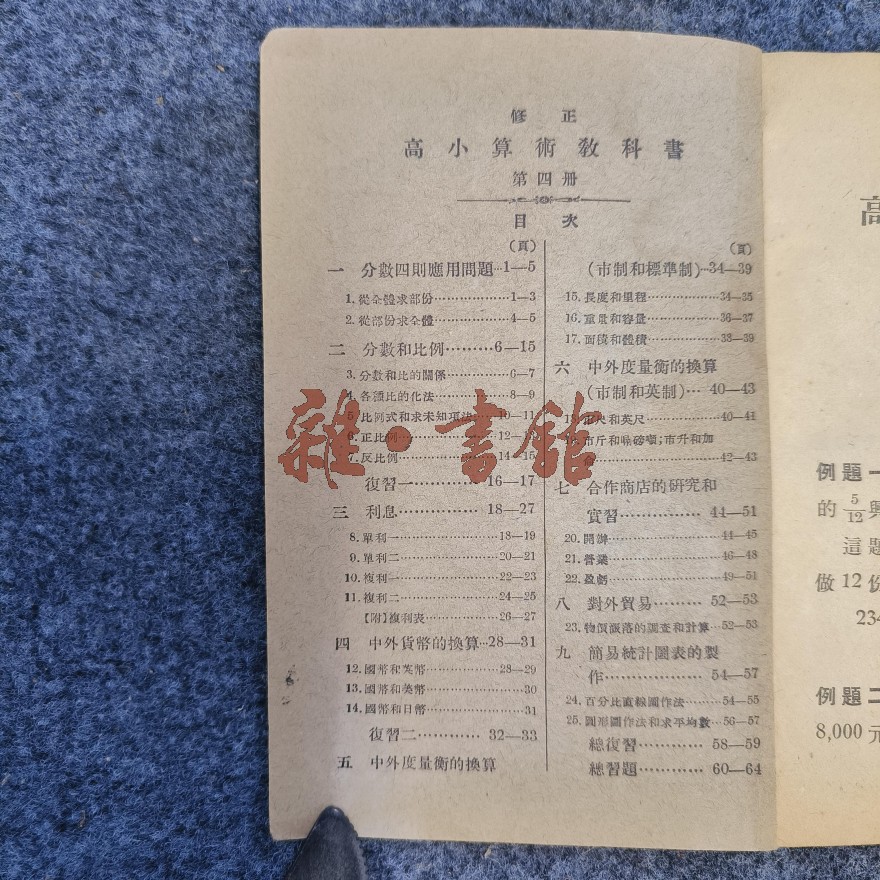 修正
高小算術教科書
第四冊
目次
(頁)
一 分數四則應用問題…1—5
1. 從全體求部份……1—3
2. 從部份求全體……4—5
二 分數和比例………6—15
3. 分數和比的關係……6—7
4. 各種比的化法……8—9
5. 比例式和求未知項法……10—11
6. 正比例……12—
7. 反比例……14—15
復習一……16—17
三 利息……18—27
8. 單利一……18—19
9. 單利二……20—21
10. 複利一……22—23
11. 複利二……24—25
【附】複利表……26—27
四 中外貨幣的換算…28—31
12. 國幣和英幣……28—29
13. 國幣和美幣……30
14. 國幣和日幣……31
復習二……32—33
五 中外度量衡的換算
(頁)
(市制和標準制)…34—39
15. 長度和里程……34—35
16. 重量和容量……36—37
17. 面積和體積……38—39
六 中外度量衡的換算
(市制和英制)… 40—43
市尺和英尺……40—41
市斤和 磅噸;市升和加
……42—43
七 合作商店的研究和
實習……44—51
20. 開辦……44—45
21. 營業……46—48
22. 盈虧……49—51
八 對外貿易………52—53
23. 物價漲落的調查和計算…52—53
九 簡易統計圖表的製
作……54—57
24. 百分比直線圖作法……54—55
25. 圓形圖作法和求平均數…56—57
總復習……58—59
總習題……60—64
雜·書館
高
例題一
的 5/12 與
這題
做12份
234
例題二
8,000元